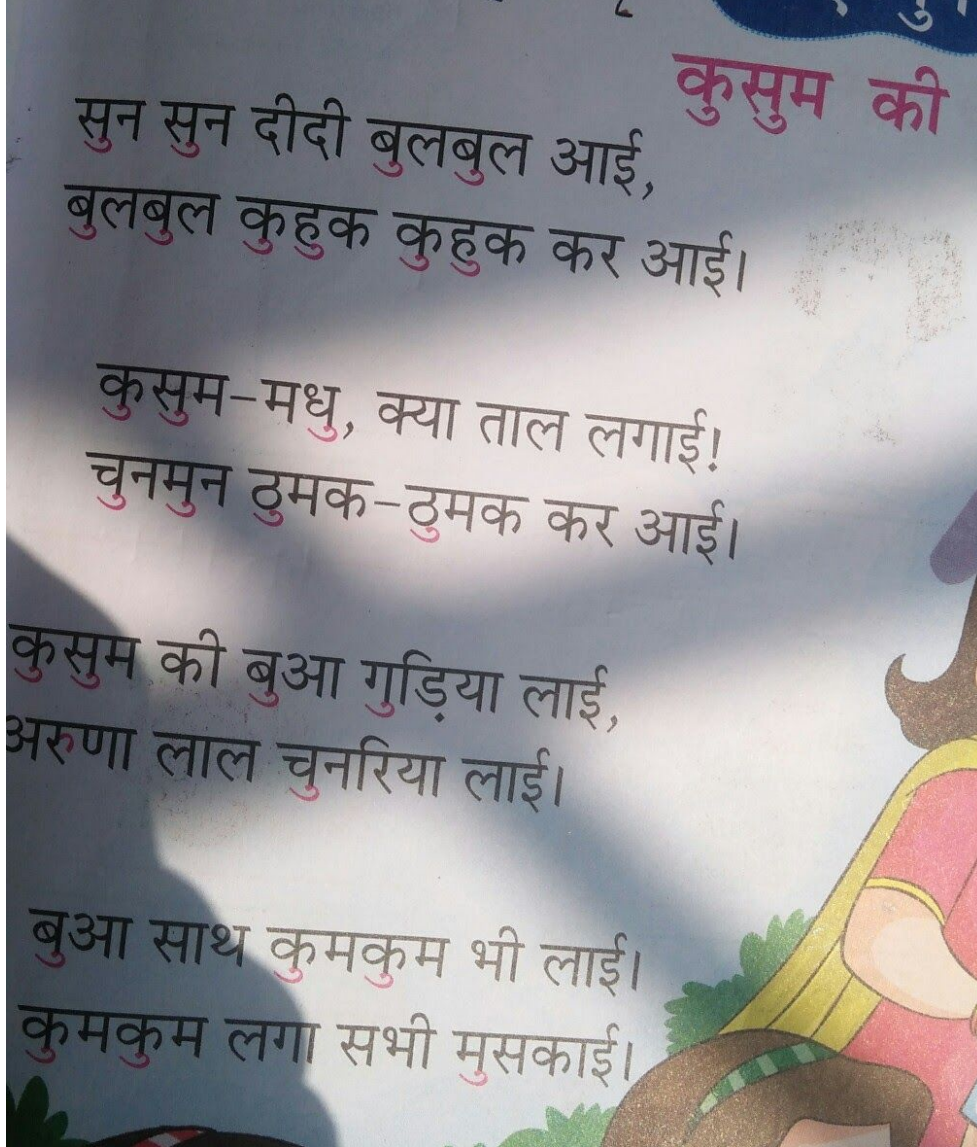 कुसुम की
सुन सुन दीदी बुलबुल आई,
बुलबुल कुहुक कुहुक कर आई।
कुसुम-मधु, क्या ताल लगाई!
चुनमुन ठुमक-ठुमक कर आई।
कुसुम की बुआ गुड़िया लाई,
अरुणा लाल चुनरिया लाई।
बुआ साथ कुमकुम भी लाई।
कुमकुम लगा सभी मुसकाई।